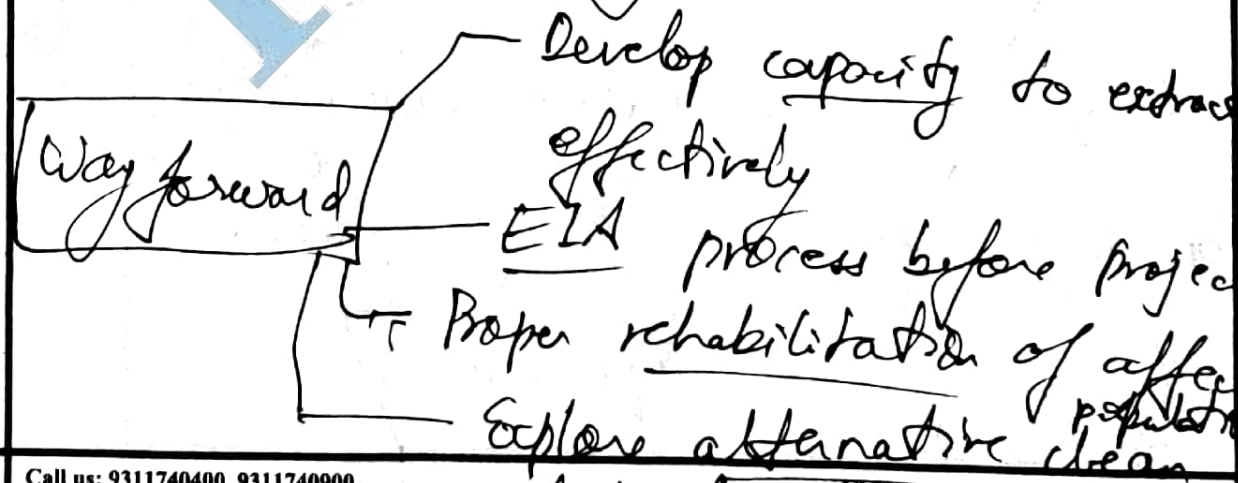 Develop capacity to extrac
effectively
Way forward
EIA process before projec
Proper rehabilitation of affec
populatio
Explore alternative clean
Call us: 9311740400, 9311740900